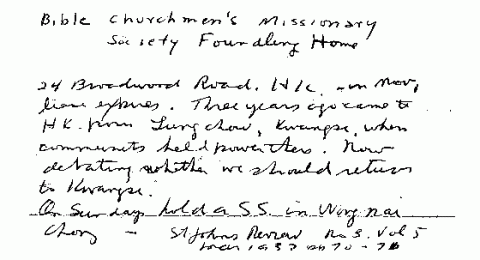 Bible Churchmen's Missionary
Society Foundling Home
24 Broadwood Road. H.K. - in Nov,
lease expires. Three years ago came to
H.K. from Lungchow, Kwangse, when
communists held power there. Now
debating whether we should return
to Kwangse.
On Sundays hold a S.S. in Wong nai
Chong - St Johns Review No 3. Vol 5
1933 pp 70 - 76